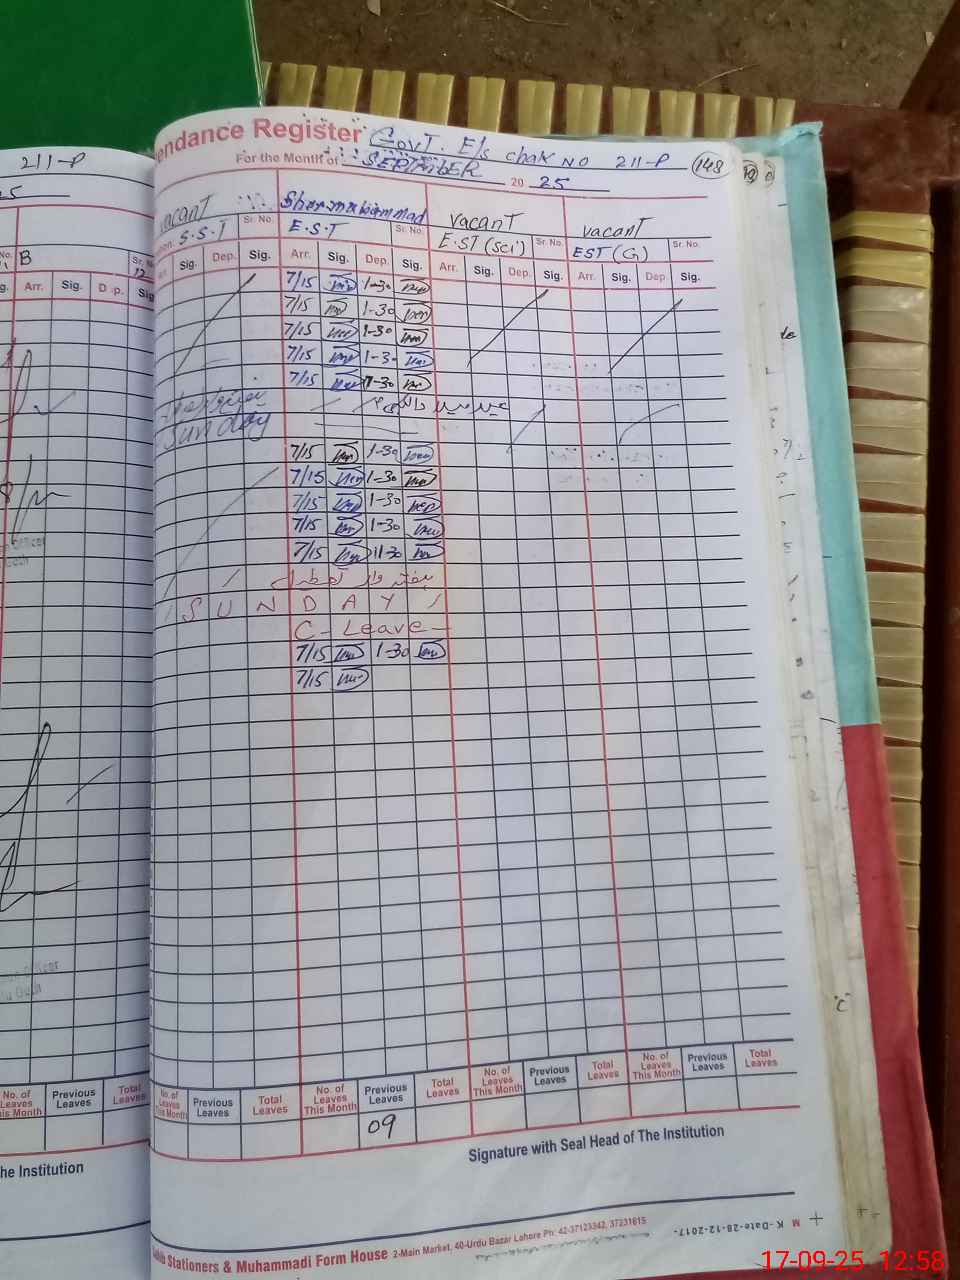 211-P
25
B
Sr. No.
12
Arr. Sig. Dep. Sig.
No. of Leaves This Month Previous Leaves Total Leaves
The Institution
Attendance Register Govt. E/s chak NO 211-P 148
For the Month of SEPTEMBER 20 25
vacanT Sher muhammad vacanT vacanT
S.S.T Sr. No. E.S.T Sr. No. E.ST (Sci) Sr. No. EST (G) Sr. No.
Sig. Dep. Sig. Arr. Sig. Dep. Sig. Arr. Sig. Dep. Sig. Arr. Sig. Dep. Sig.
7/15 1-30
7/15 1-30
7/15 1-30
7/15 1-30
7/15 1-30
عید میلاد النبی
Sunday
7/15 1-30
7/15 1-30
7/15 1-30
7/15 1-30
7/15 11-30
ہفتہ وار تعطیل
SUNDAY
C- Leave-
7/15 1-30
7/15
No. of Leaves This Month Previous Leaves Total Leaves No. of Leaves This Month Previous Leaves Total Leaves No. of Leaves This Month Previous Leaves Total Leaves No. of Leaves This Month Previous Leaves Total Leaves
09
Signature with Seal Head of The Institution
Stationers & Muhammadi Form House 2-Main Market, 40-Urdu Bazar Lahore Ph: 42-37123342, 37231615
M K-Date-28-12-2017-
17-09-25 12:58